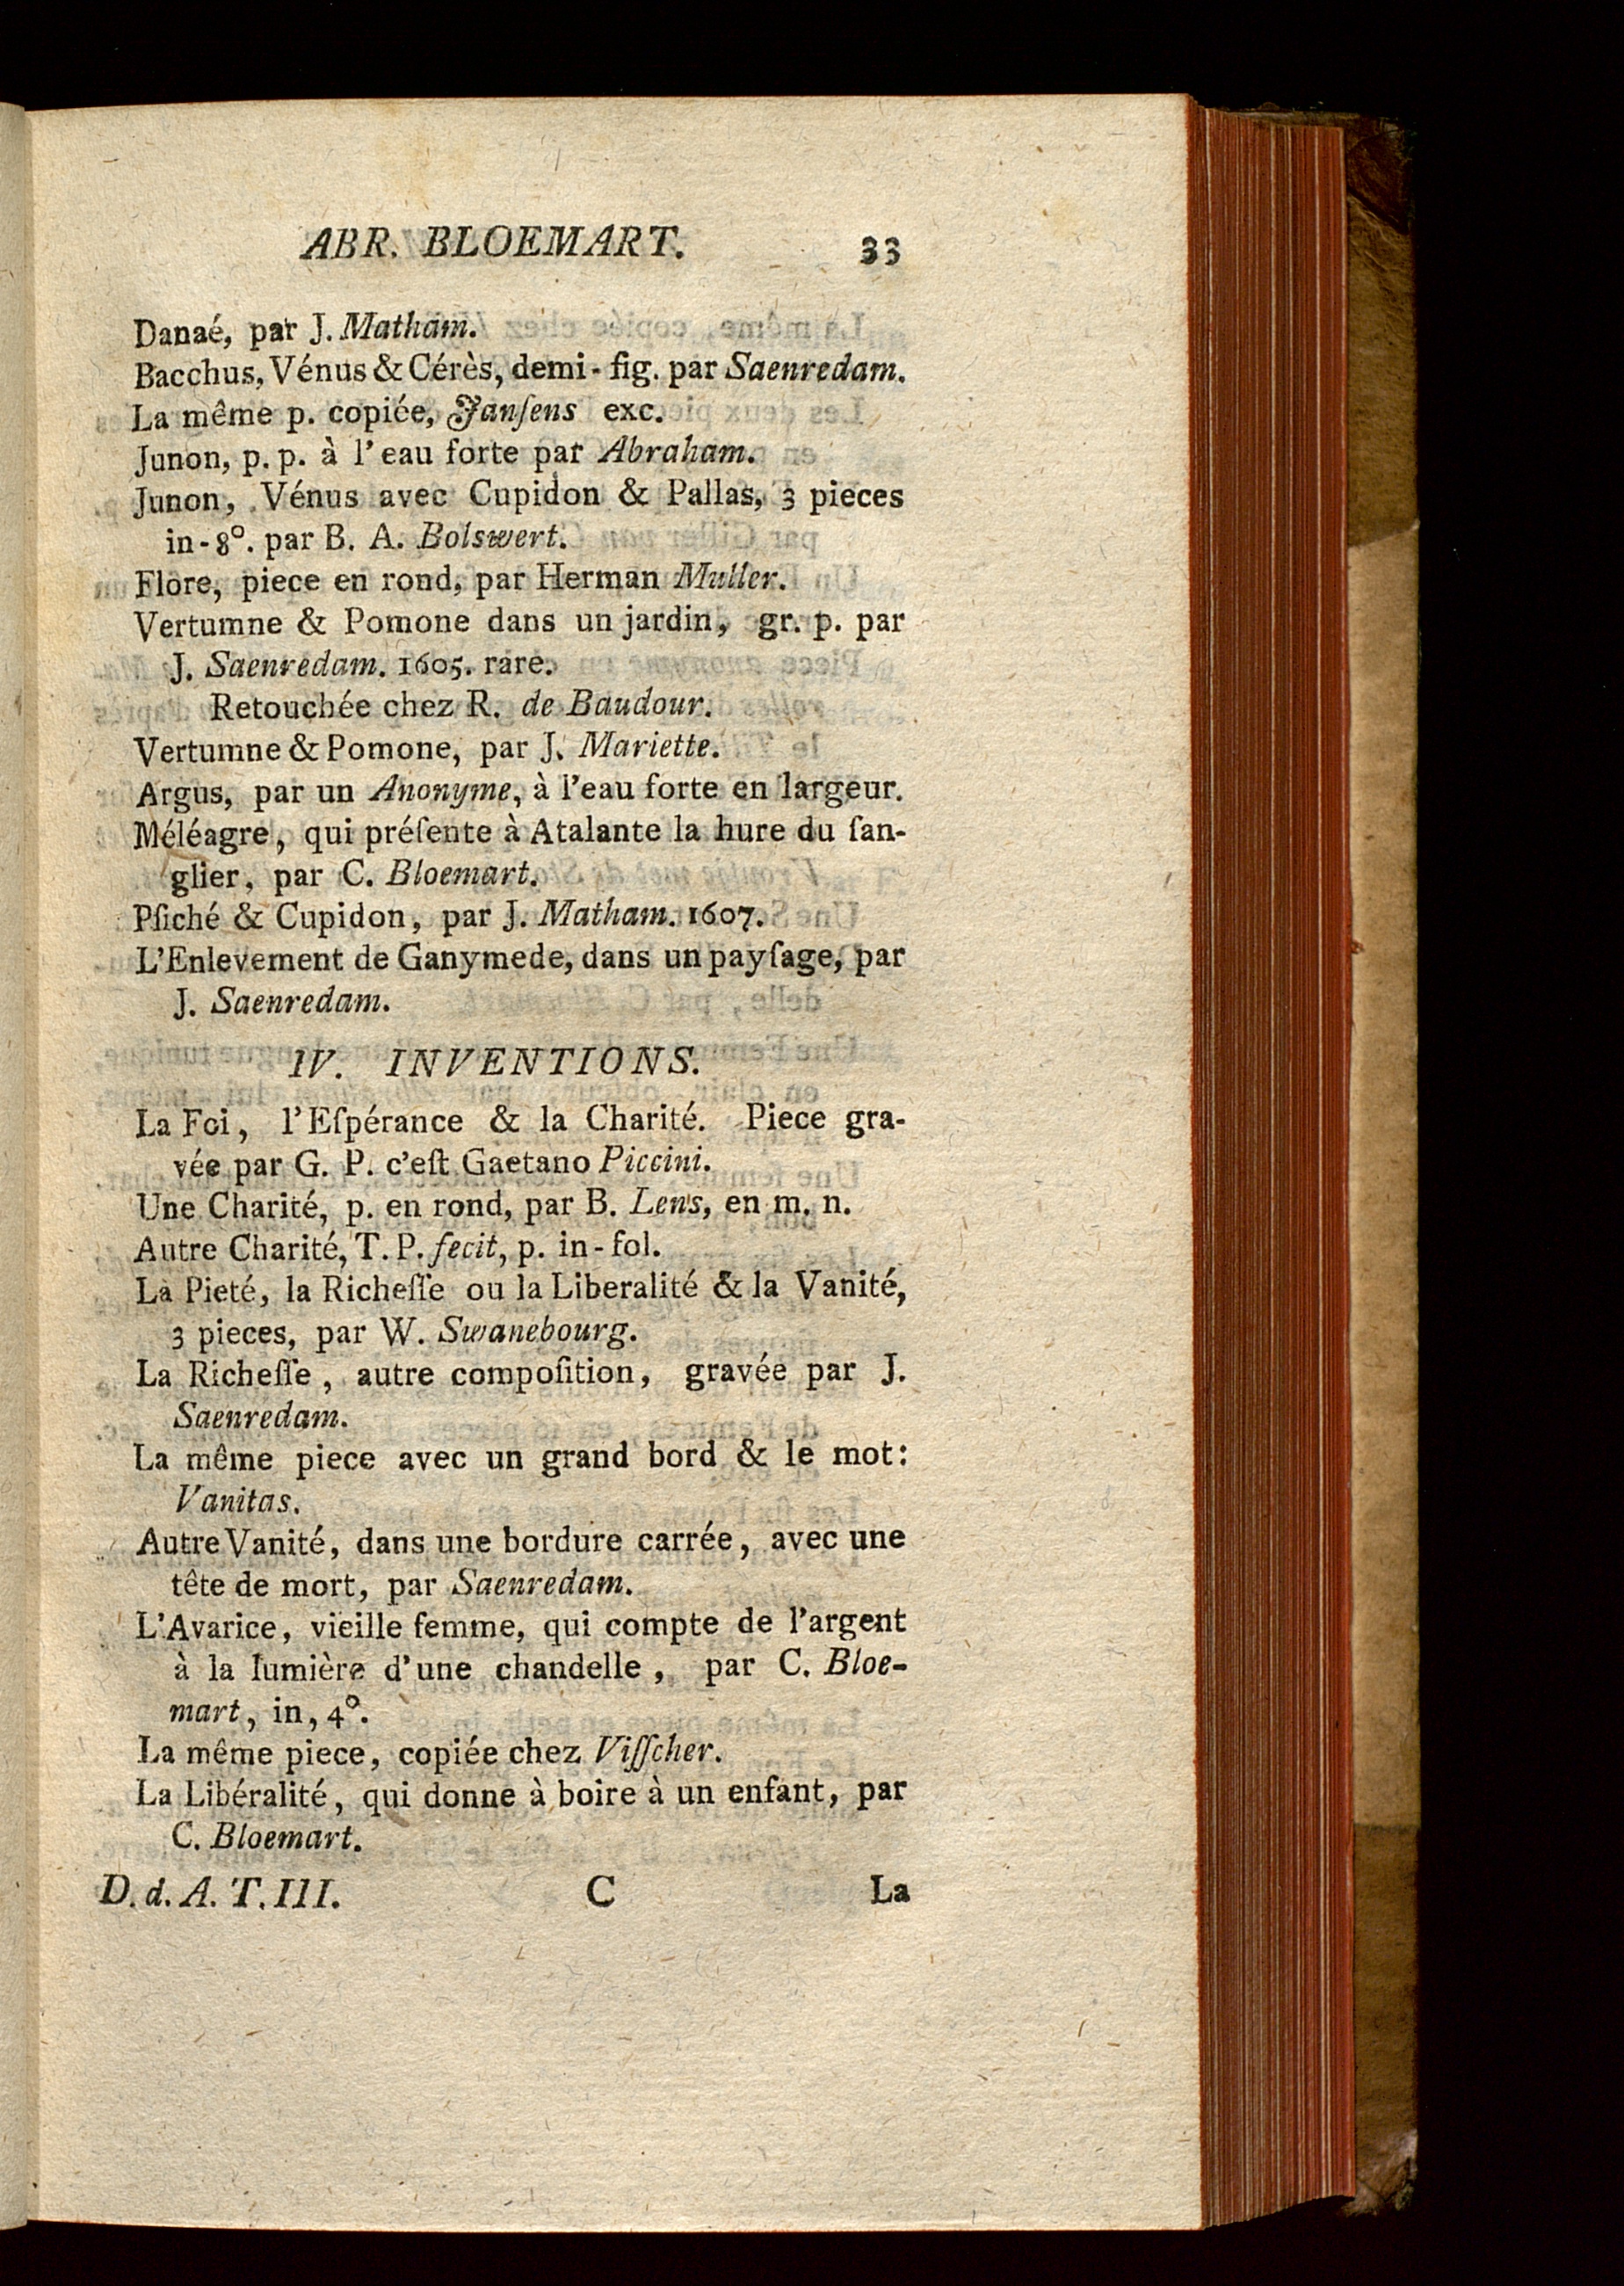 ABR. BLOEMART. 33
Danaé, par J. Matham.
Bacchus, Vénus & Cérès, demi-fig. par Saenredam.
La même p. copiée, Janſens exc.
Junon, p. p. à l'eau forte par Abraham.
Junon, Vénus avec Cupidon & Pallas, 3 pieces
in-8°. par B. A. Bolswert.
Flore, piece en rond, par Herman Muller.
Vertumne & Pomone dans un jardin, gr. p. par
J. Saenredam. 1605. rare.
Retouchée chez R. de Baudour.
Vertumne & Pomone, par J. Mariette.
Argus, par un Anonyme, à l'eau forte en largeur.
Méléagre, qui préſente à Atalante la hure du ſan-
glier, par C. Bloemart.
Pſiché & Cupidon, par J. Matham. 1607.
L'Enlevement de Ganymede, dans un payſage, par
J. Saenredam.
IV. INVENTIONS.
La Foi, l'Eſpérance & la Charité. Piece gra-
vée par G. P. c'eſt Gaetano Piccini.
Une Charité, p. en rond, par B. Lens, en m. n.
Autre Charité, T. P. fecit, p. in-fol.
La Pieté, la Richeſſe ou la Liberalité & la Vanité,
3 pieces, par W. Swanebourg.
La Richeſſe, autre compoſition, gravée par J.
Saenredam.
La même piece avec un grand bord & le mot:
Vanitas.
Autre Vanité, dans une bordure carrée, avec une
tête de mort, par Saenredam.
L'Avarice, vieille femme, qui compte de l'argent
à la lumière d'une chandelle, par C. Bloe-
mart, in, 4°.
La même piece, copiée chez Viſſcher.
La Libéralité, qui donne à boire à un enfant, par
C. Bloemart.
D. d. A. T. III. C La